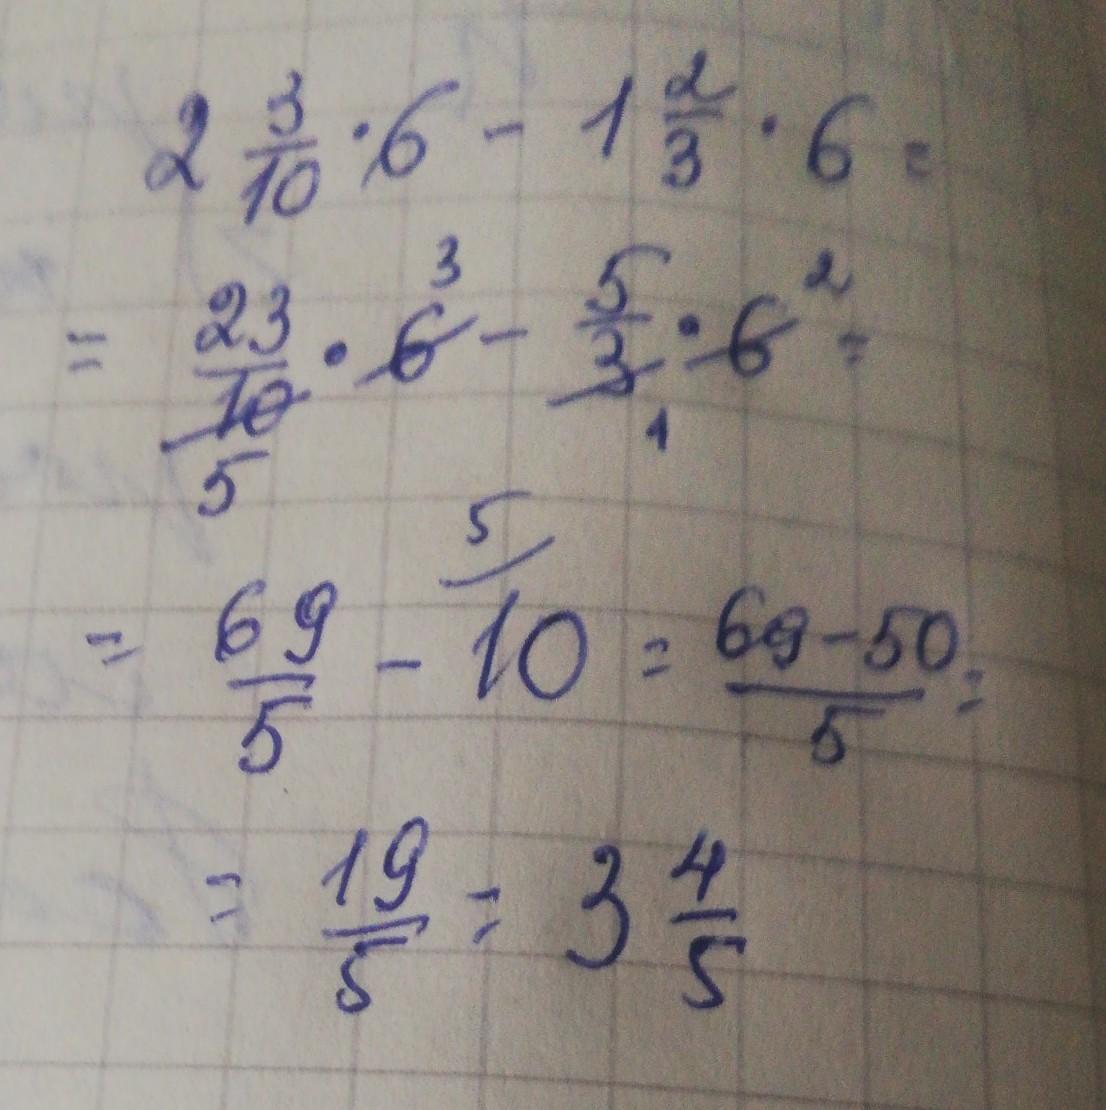 2 3/10 · 6 - 1 2/3 · 6 =
= 23/10 5 · 6 3 - 5/3 1 · 6 2 =
= 69/5 - 10 5/ = 69-50/5 =
= 19/5 = 3 4/5